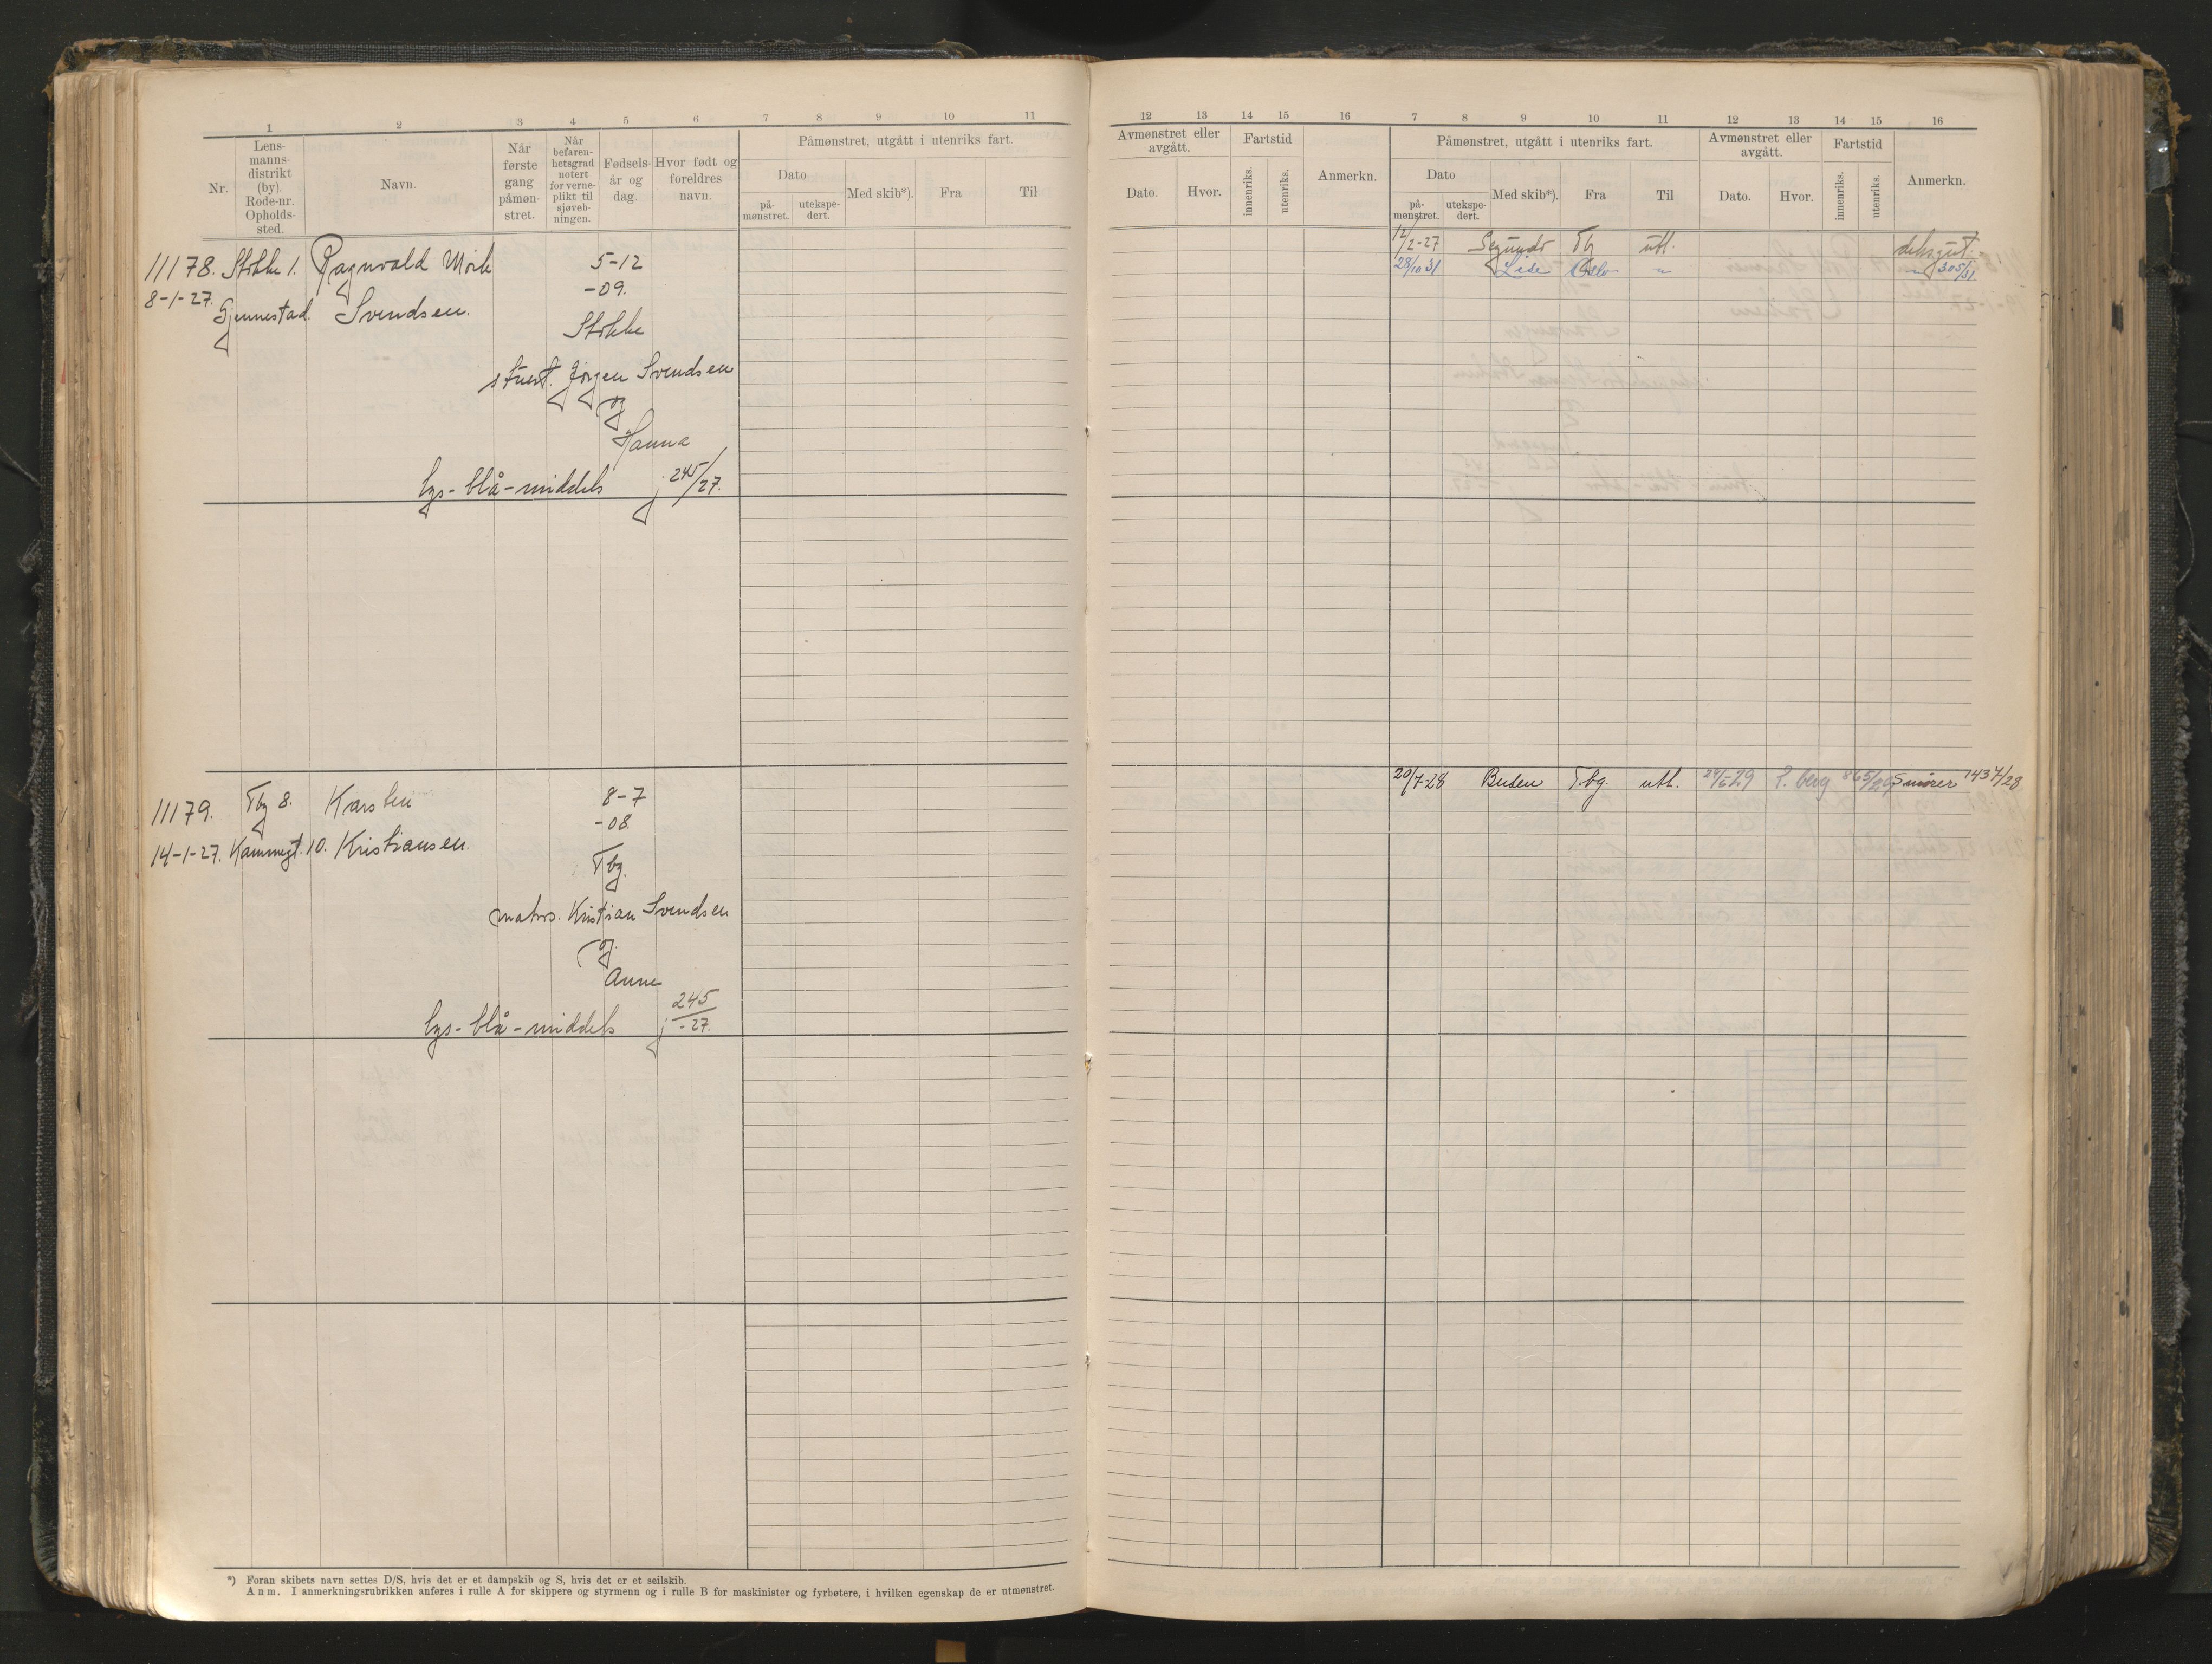 1 2 3 4 5 6 7 8 9 10 11
Nr.
Lens-
manns-
distrikt
(by).
Rode-nr.
Opholds-
sted.
Navn.
Når
første
gang
påmøn-
stret.
Når
befaren-
hetsgrad
notert
for verne-
plikt til
sjøveb-
ningen.
Fødsels-
år og
dag.
Hvor født og
foreldres
navn.
Påmønstret, utgått i utenriks fart.
Dato
på-
mønstret.
utekspe-
dert.
Med skib*).
Fra
Til
11178. Stokke 1. Ragnvald Mørk 5-12
8-1-27. -09.
Gjennestad. Svendsen.
Stokke
stuert. Jørgen Svendsen
og
Hanna
lys-blå-middels j 245/27.
11179. Tbg 8. Karsten 8-7
-08.
14-1-27. Kammegt. 10. Kristiansen.
Tbg.
matros. Kristian Svendsen
og.
Anne
lys-blå-middels j 245
-27.
*) Foran skibets navn settes D/S, hvis det er et dampskib og S, hvis det er et seilskib.
Anm. I anmerkningsrubrikken anføres i rulle A for skippere og styrmenn og i rulle B for maskinister og fyrbøtere, i hvilken egenskap de er utmønstret.
12 13 14 15 16 7 8 9 10 11 12 13 14 15 16
Avmønstret eller
avgått.
Dato.
Hvor.
Fartstid
innenriks.
utenriks.
Anmerkn.
Påmønstret, utgått i utenriks fart.
Dato
på-
mønstret.
utekspe-
dert.
Med skib*).
Fra
Til
Avmønstret eller
avgått.
Dato.
Hvor.
Fartstid
innenriks.
utenriks.
Anmerkn.
12/2-27 Segundo Tbg utl. deksgut.
28/10 31 Lise Oslo " " 305/31
20/7-28 Tbg. utl. 24/6-29 865/29 Smører 1437/28